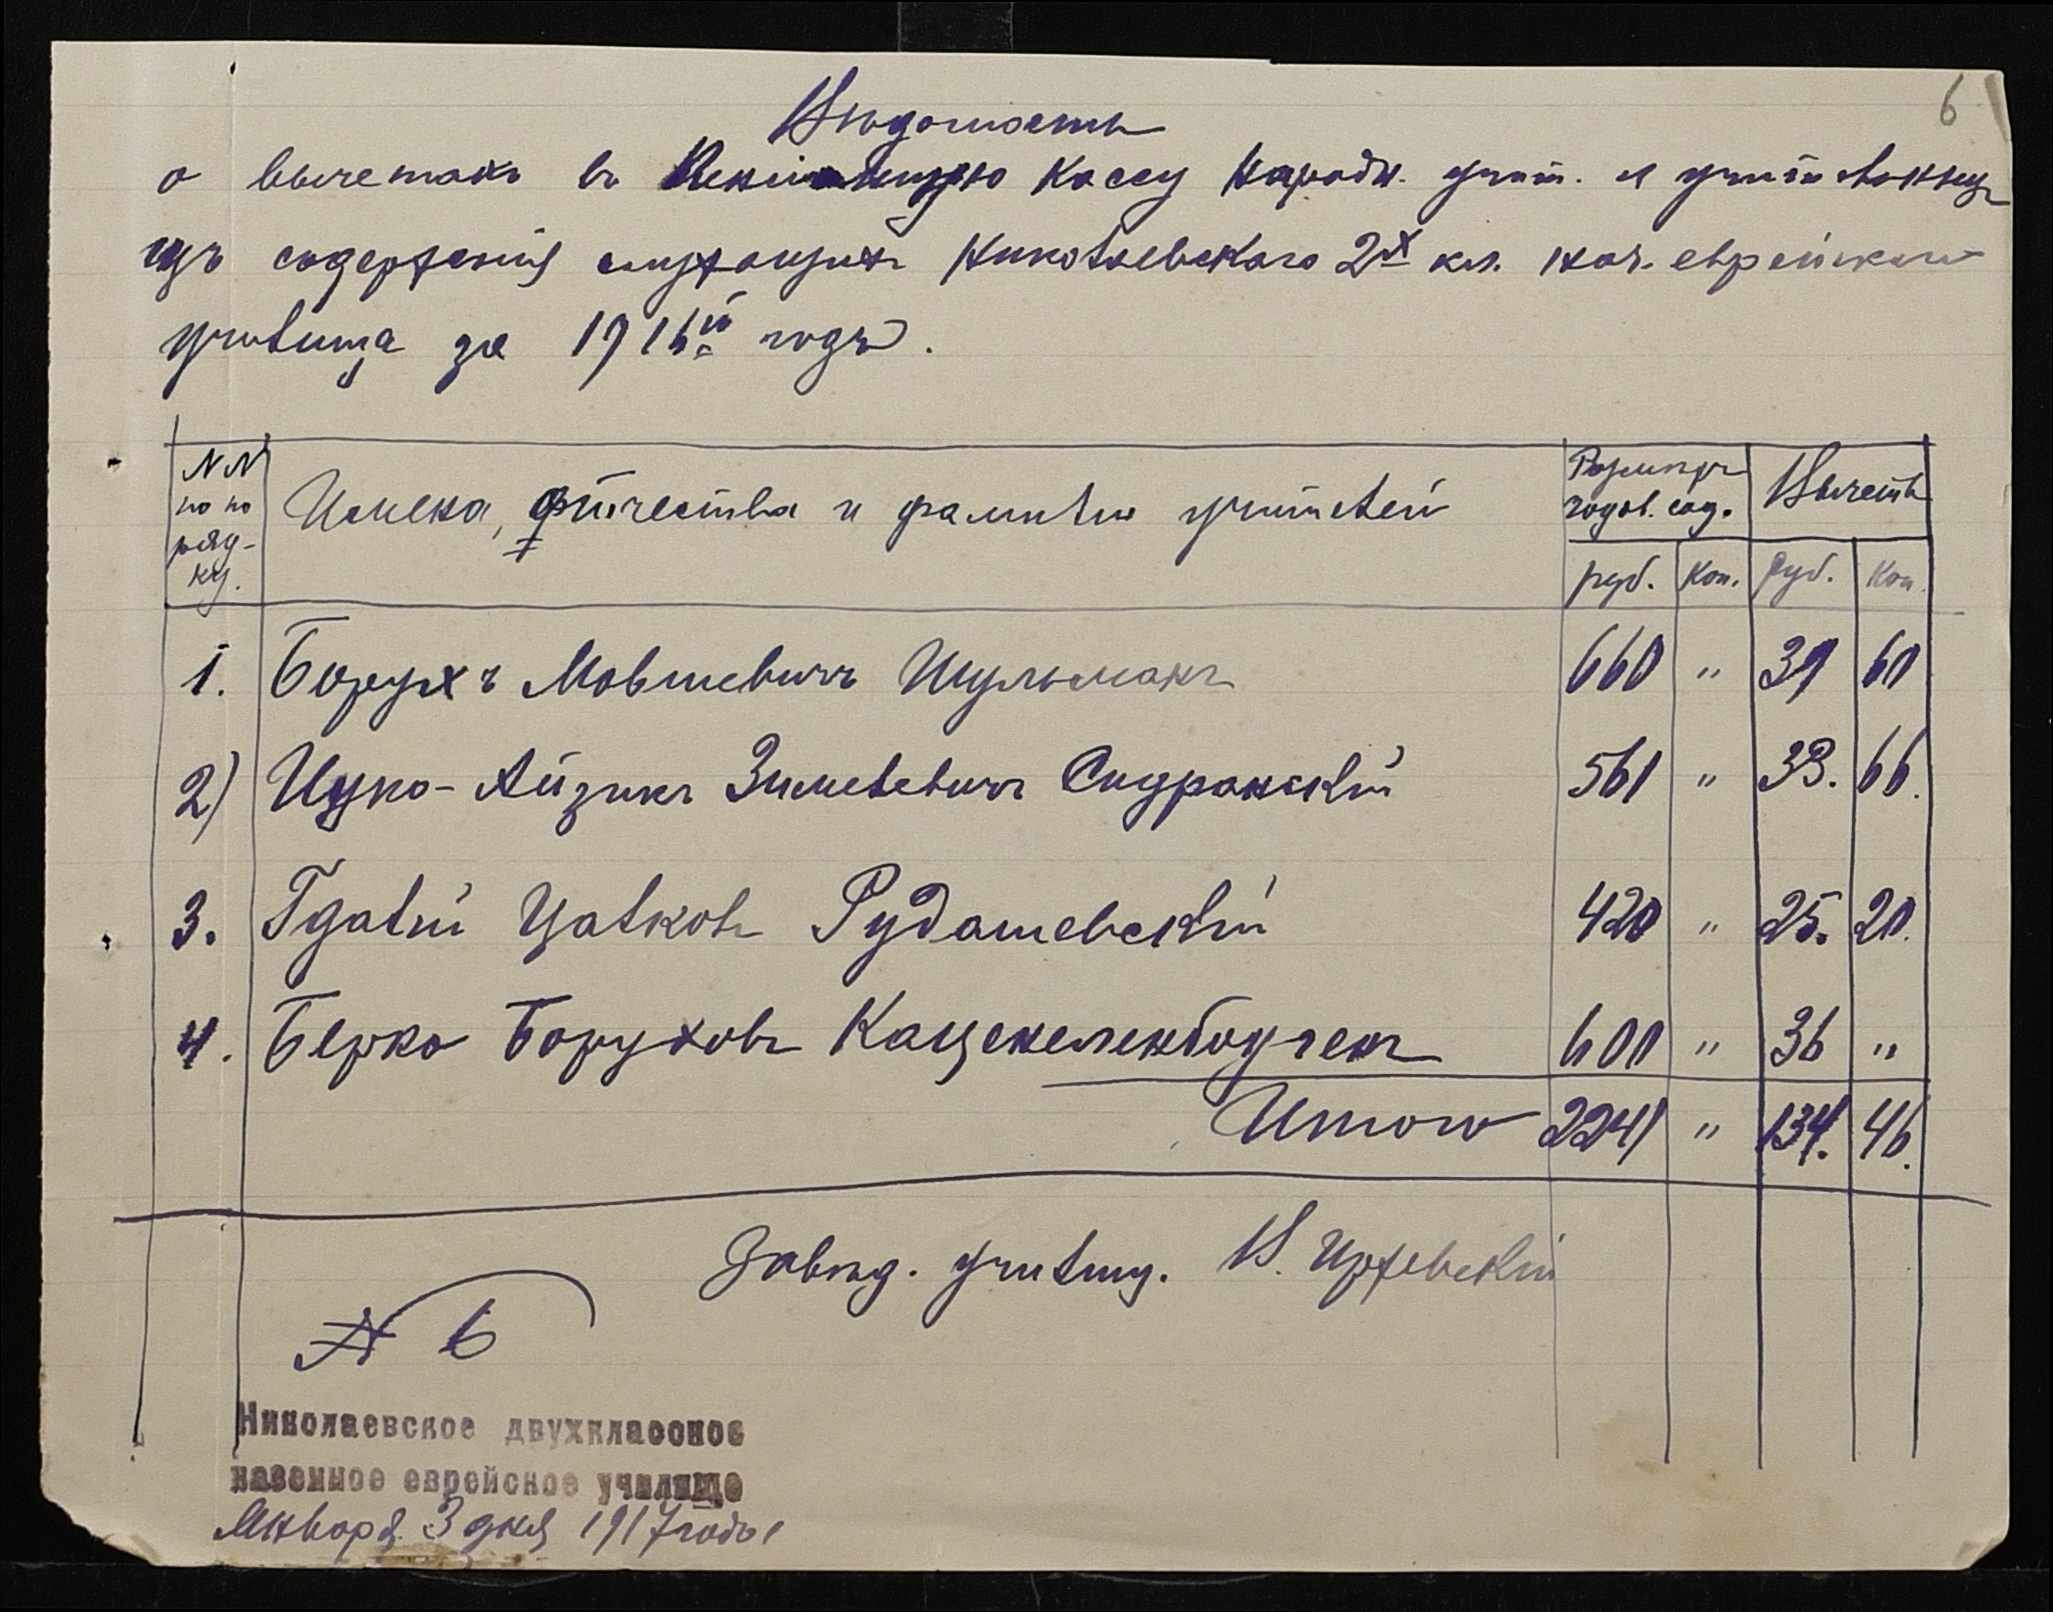 6
Вѣдомость
о вычетахъ въ Пенсіонную Кассу Народн. учит. и учительницъ
изъ содержанія служащихъ Николаевскаго 2х кл. нач. еврейскаго
училища за 1916й годъ.
NN по порядку. Имена, отчества и фамиліи учителей Размѣръ годов. сод. Вычетъ
руб. Коп. Руб. Коп.
1. Борухъ Мовшевичъ Шульманъ 660 " 39 60
2) Ицко-Айзикъ Зимелевичъ Сидранскій 561 " 33. 66.
3. Гдалій Цалковъ Рудашевскій 420 " 25. 20.
4. Берко Боруховъ Каценеленбогенъ 600 " 36 "
Итого 2241 " 134. 46.
Завѣд. училищ. В. Иржевскій
№ 6
Николаевское двухклассное
казенное еврейское училище
Января 3 дня 1917 года